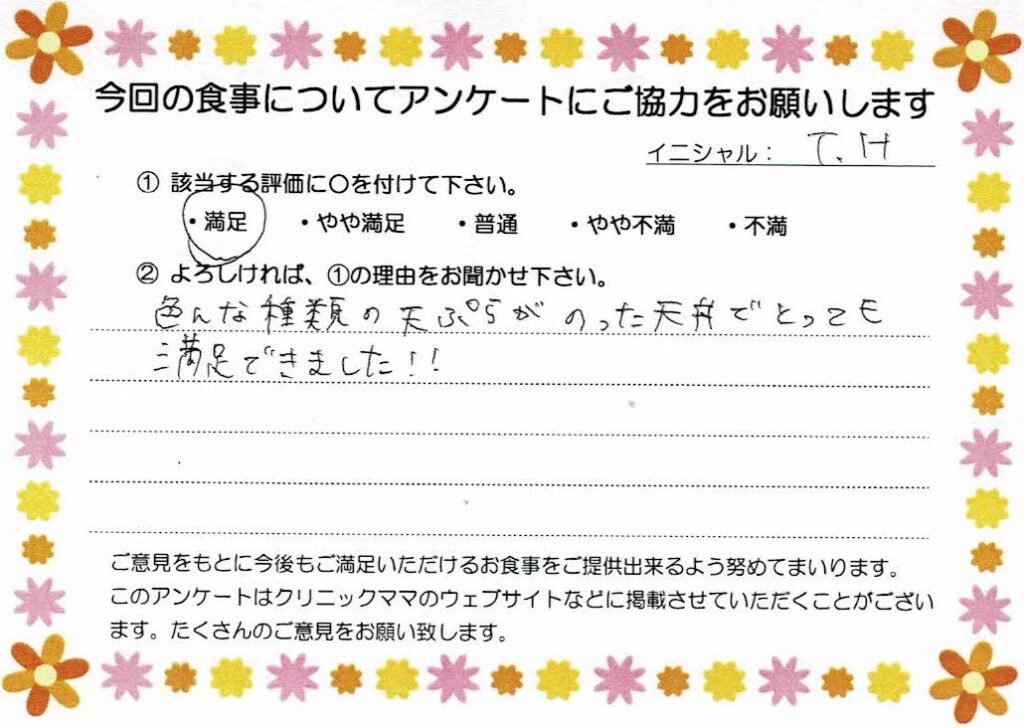 今回の食事についてアンケートにご協力をお願いします
イニシャル： T.H
① 該当する評価に〇を付けて下さい。
・満足 ・やや満足 ・普通 ・やや不満 ・不満
② よろしければ、①の理由をお聞かせ下さい。
色んな種類の天ぷらがのった天丼でとっても
満足できました！！
ご意見をもとに今後もご満足いただけるお食事をご提供出来るよう努めてまいります。
このアンケートはクリニックママのウェブサイトなどに掲載させていただくことがござい
ます。たくさんのご意見をお願い致します。